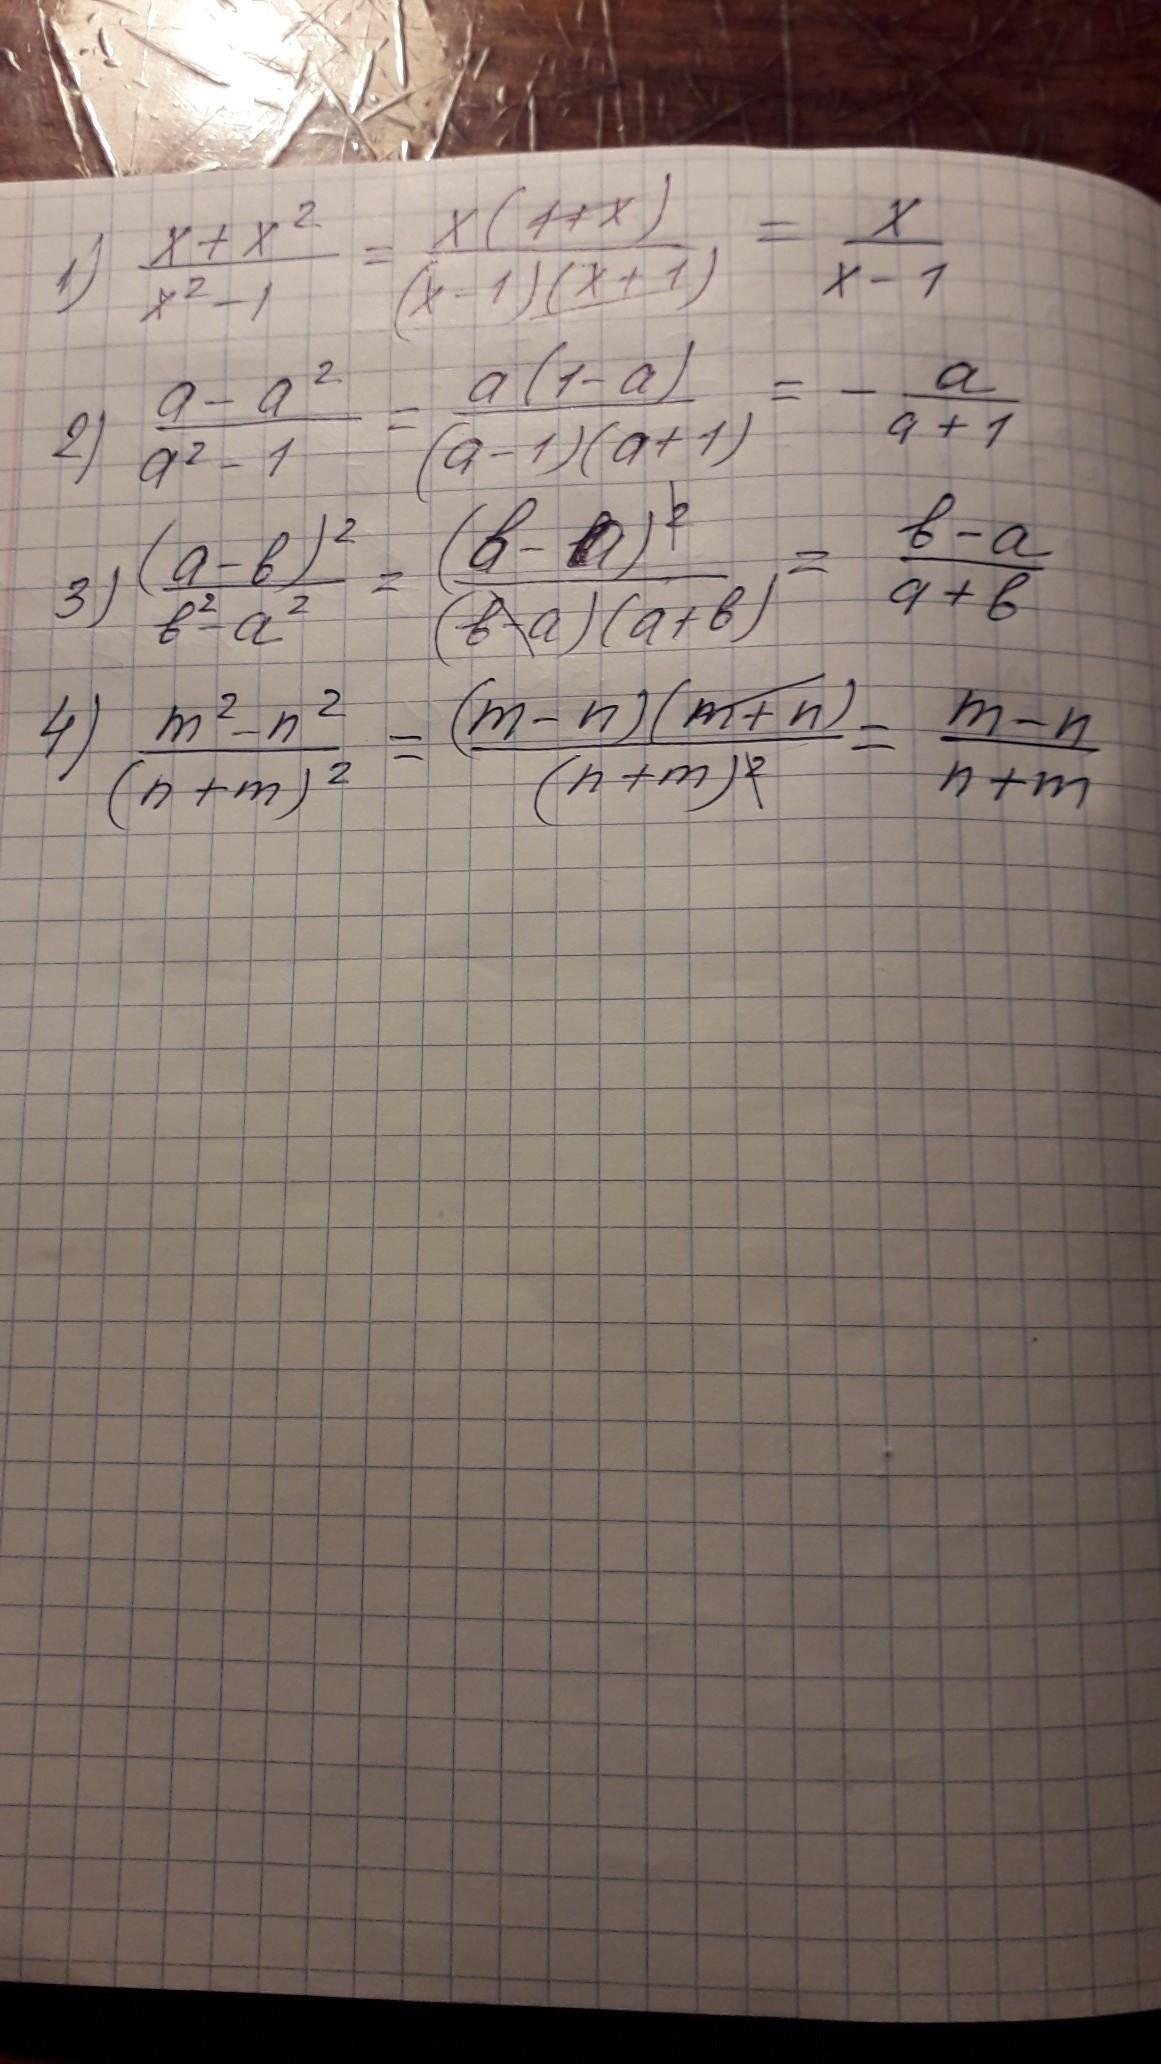 1) (x+x²)/(x²-1) = x(1+x)/(x-1)(x+1) = x/(x-1)
2) (a-a²)/(a²-1) = a(1-a)/(a-1)(a+1) = - a/(a+1)
3) (a-в)²/(в²-a²) = (в-a)²/(в-a)(a+в) = (в-a)/(a+в)
4) (m²-n²)/(n+m)² = (m-n)(m+n)/(n+m)² = (m-n)/(n+m)